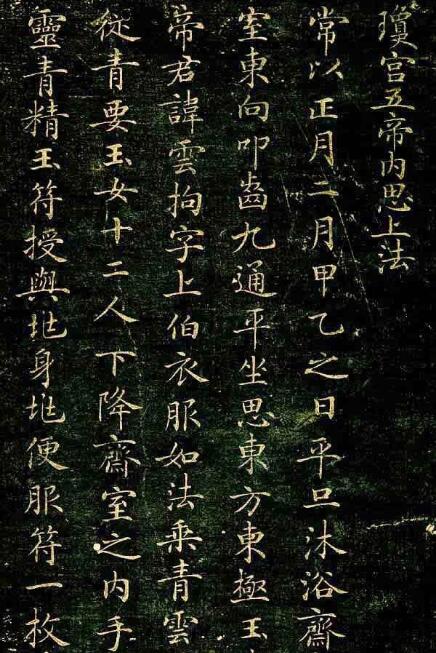 瓊宮五帝内思上法
常以正月二月甲乙之日平旦沐浴齋
室東向叩齒九通平坐思東方東極玉
帝君諱雲拘字上伯衣服如法乘青雲
從青要玉女十二人下降齋室之内手
靈青精玉符授與兆身兆便服符一枚